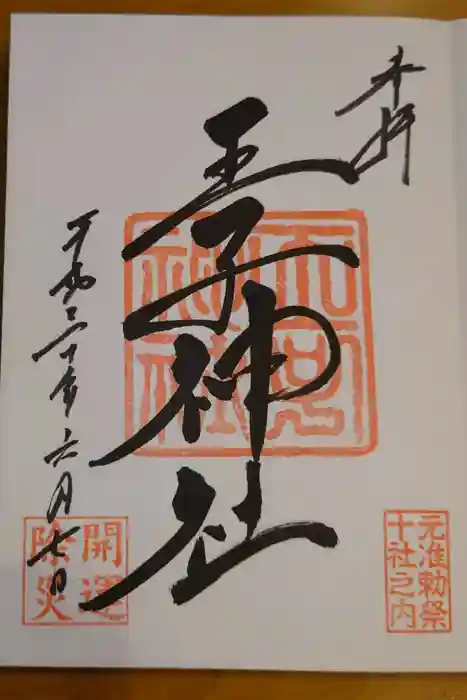 奉拝
元准勅祭
十社之内
王子神社
王子
神社
平成三十年六月七日
開運
除災